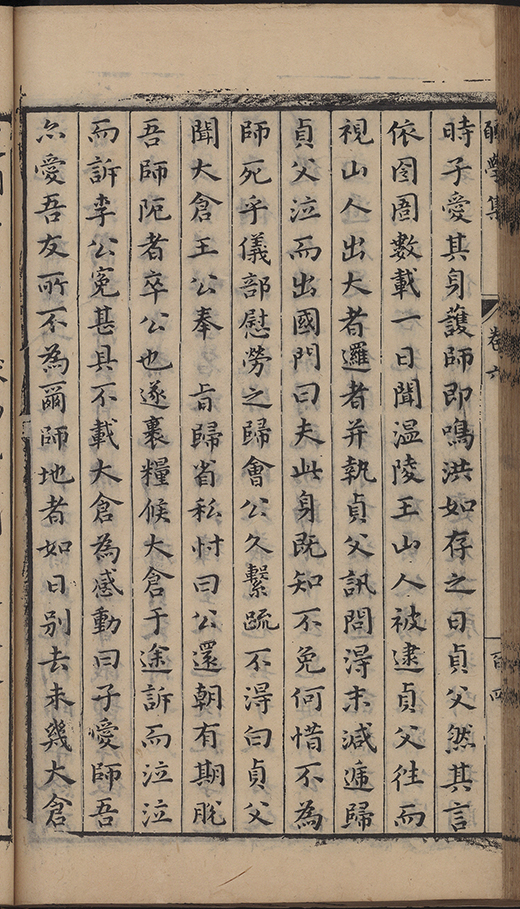 集
卷六
百四
時子愛其身護師即鳴洪如存之日貞父然其言
依圄圄數載一日聞温陵王山人被逮貞父往而
視山人出大者邏者并執貞父訊問得末減逓歸
貞父泣而出國門曰夫此身既知不免何惜不為
師死乎儀部慰勞之歸會公久繫疏不得白貞父
聞大倉王公奉 旨歸省私忖曰公還朝有期脫
吾師阨者卒公也遂裹糧候大倉于途訴而泣泣
而訴李公寃甚具不載大倉為感動曰子愛師吾
亦愛吾友所不為爾師地者如日別去未幾大倉